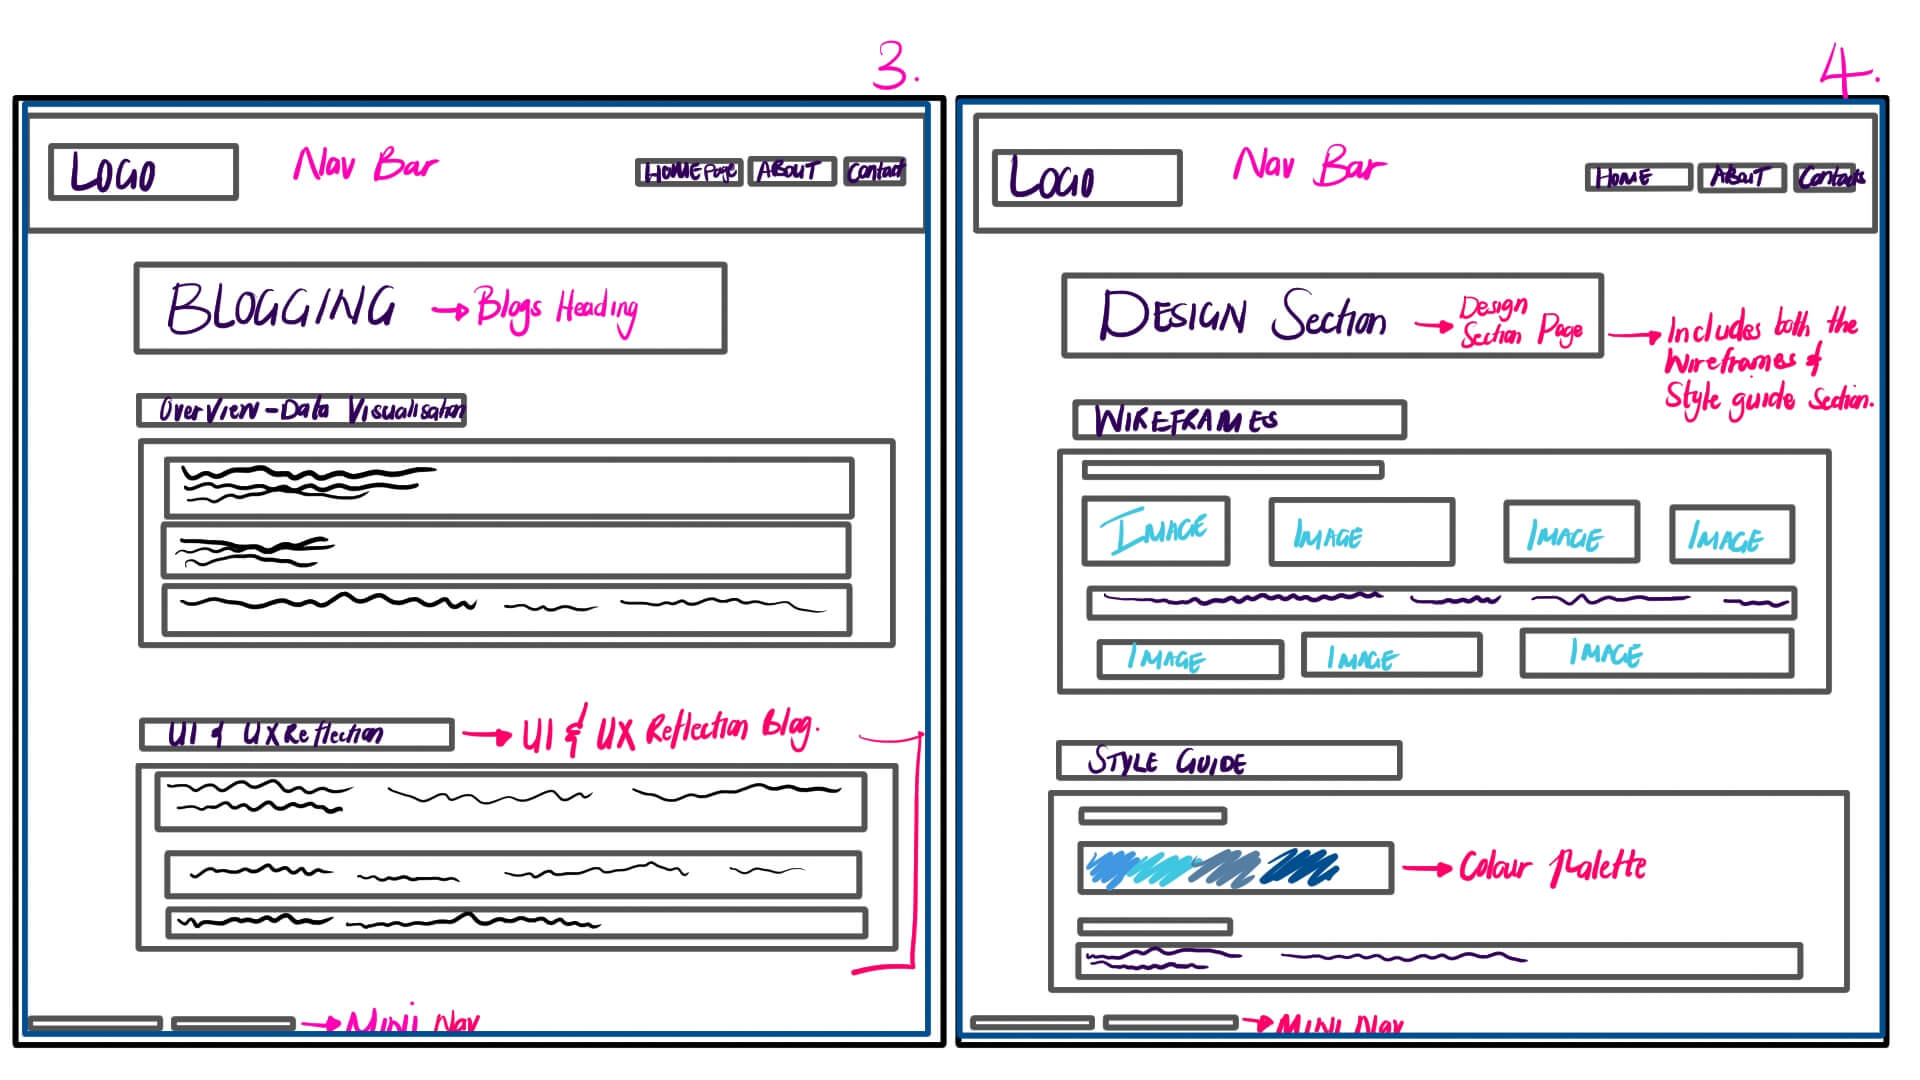 3.
LOGO
Nav Bar
HOMEPage
ABOUT
Contact
BLOGGING
Blogs Heading
OverView-Data Visualisation
UI & UX Reflection
UI & UX Reflection Blog.
MiNi Nav
4.
LOGO
Nav Bar
HOME
ABOUT
Contacts
DESIGN Section
Design
Section Page
Includes both the
Wireframes &
Style guide Section.
WIREFRAMES
IMAGE
IMAGE
IMAGE
IMAGE
IMAGE
IMAGE
IMAGE
STYLE GUIDE
Colour Palette
MINI Nav